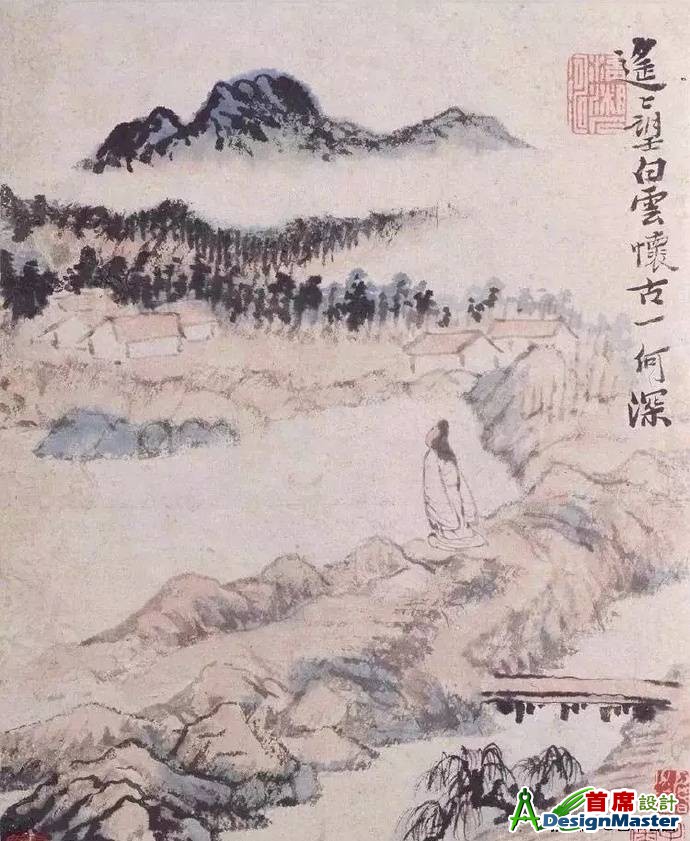 遙〻望白雲懷古一何深
首席設計
ADesignMaster